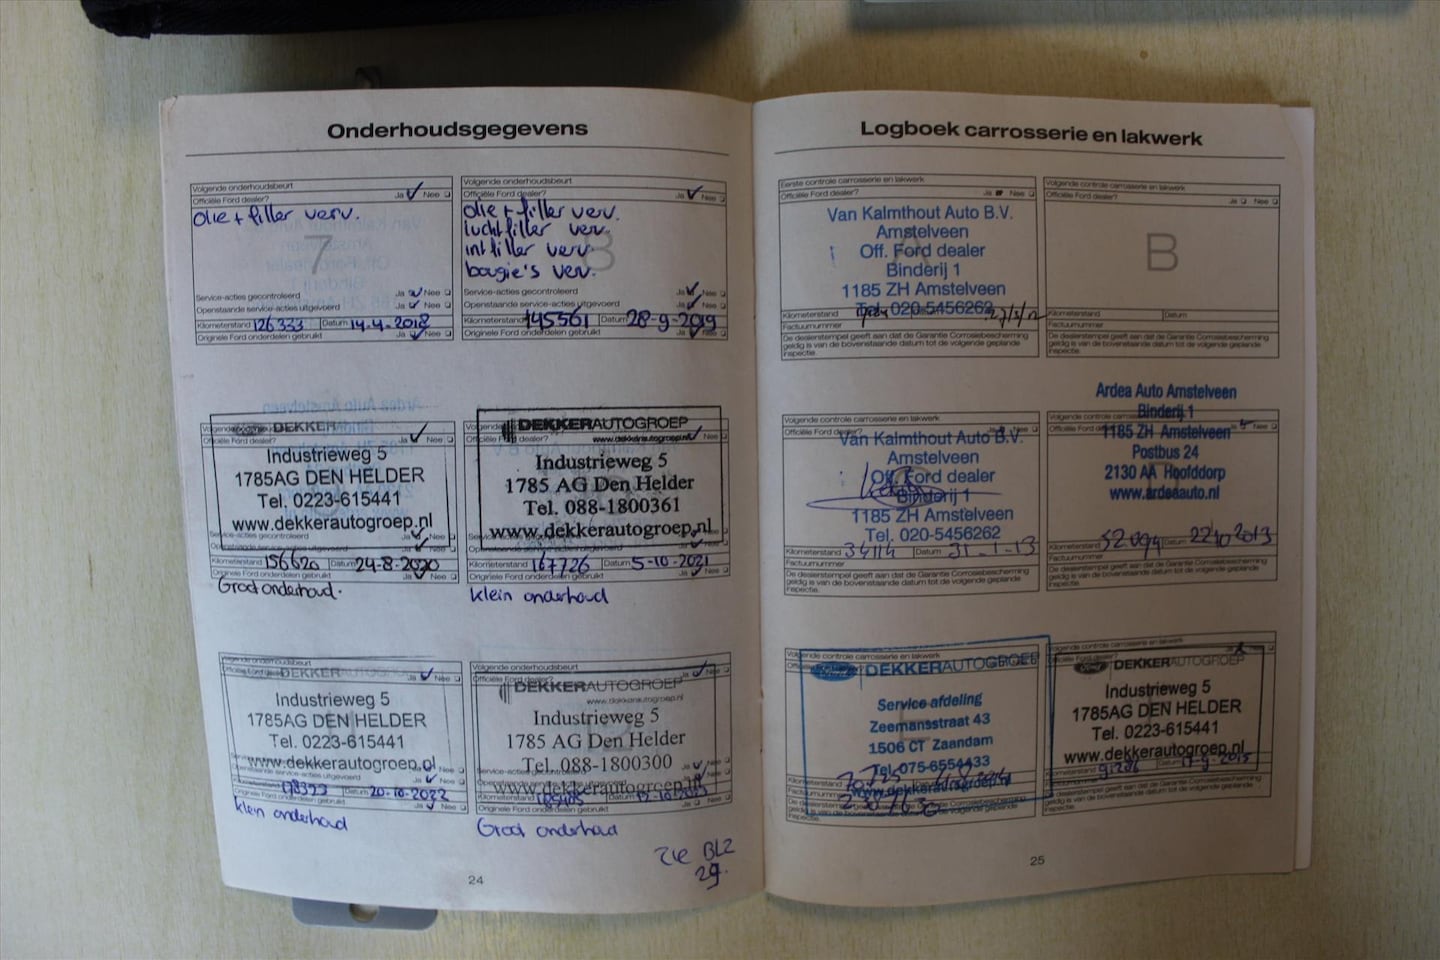 Onderhoudsgegevens
Volgende onderhoudsbeurt
Officiële Ford dealer? Ja Nee
olie + filter verv.
7
Service-acties gecontroleerd Ja Nee
Openstaande service-acties uitgevoerd Ja Nee
Kilometerstand 126333 Datum 14-4-2018
Originele Ford onderdelen gebruikt Ja Nee
Volgende onderhoudsbeurt
Officiële Ford dealer? Ja Nee
olie + filter verv.
luchtfilter verv.
intfilter verv.
bougie's verv.
8
Service-acties gecontroleerd Ja Nee
Openstaande service-acties uitgevoerd Ja Nee
Kilometerstand 145561 Datum 28-9-2019
Originele Ford onderdelen gebruikt Ja Nee
DEKKER
Officiële Ford dealer? Ja Nee
Industrieweg 5
1785AG DEN HELDER
Tel. 0223-615441
www.dekkerautogroep.nl
Service-acties gecontroleerd
Openstaande service-acties uitgevoerd
Kilometerstand 156620 Datum 24-8-2020
Originele Ford onderdelen gebruikt Ja Nee
Groot onderhoud.
DEKKERAUTOGROEP
www.dekkerautogroep.nl
Industrieweg 5
1785 AG Den Helder
Tel. 088-1800361
www.dekkerautogroep.nl
Kilometerstand 167726 Datum 5-10-2021
Originele Ford onderdelen gebruikt Ja Nee
klein onderhoud
Volgende onderhoudsbeurt
DEKKERAUTOGROEP
Ja Nee
Industrieweg 5
1785AG DEN HELDER
Tel. 0223-615441
www.dekkerautogroep.nl
Openstaande service-acties uitgevoerd Ja Nee
Datum 20-10-2022
Originele Ford onderdelen gebruikt Ja Nee
klein onderhoud
Volgende onderhoudsbeurt
Officiële Ford dealer? Ja Nee
DEKKERAUTOGROEP
www.dekkerautogroep.nl
Industrieweg 5
1785 AG Den Helder
Tel. 088-1800300
www.dekkerautogroep.nl
Originele Ford onderdelen gebruikt Ja Nee
Groot onderhoud
Zie BLZ
29.
24
Logboek carrosserie en lakwerk
Eerste controle carrosserie en lakwerk
Officiële Ford dealer? Ja Nee
Van Kalmthout Auto B.V.
Amstelveen
Off. Ford dealer
Binderij 1
1185 ZH Amstelveen
Tel. 020-5456262
A
Kilometerstand
Factuurnummer
De dealerstempel geeft aan dat de Garantie Corrosiebescherming
geldig is van de bovenstaande datum tot de volgende geplande
inspectie.
Volgende controle carrosserie en lakwerk
Officiële Ford dealer? Ja Nee
B
Kilometerstand Datum
Factuurnummer
De dealerstempel geeft aan dat de Garantie Corrosiebescherming
geldig is van de bovenstaande datum tot de volgende geplande
inspectie.
Volgende controle carrosserie en lakwerk
Officiële Ford dealer? Ja Nee
Van Kalmthout Auto B.V.
Amstelveen
Off. Ford dealer
Binderij 1
1185 ZH Amstelveen
Tel. 020-5456262
Kilometerstand 34114 Datum 31-1-13
Factuurnummer
De dealerstempel geeft aan dat de Garantie Corrosiebescherming
geldig is van de bovenstaande datum tot de volgende geplande
inspectie.
Ardea Auto Amstelveen
Binderij 1
1185 ZH Amstelveen
Postbus 24
2130 AA Hoofddorp
www.ardeaauto.nl
Kilometerstand 52094 Datum 22 10 2013
Factuurnummer
De dealerstempel geeft aan dat de Garantie Corrosiebescherming
geldig is van de bovenstaande datum tot de volgende geplande
inspectie.
Volgende controle carrosserie en lakwerk
DEKKERAUTOGROEP
Service afdeling
Zeemansstraat 43
1506 CT Zaandam
Tel. 075-6554433
www.dekkerautogroep.nl
Kilometerstand 70725
Factuurnummer
Volgende controle carrosserie en lakwerk
DEKKERAUTOGROEP
Industrieweg 5
1785AG DEN HELDER
Tel. 0223-615441
www.dekkerautogroep.nl
Kilometerstand 91286 Datum 17-9-2015
Factuurnummer
De dealerstempel geeft aan dat de Garantie Corrosiebescherming
geldig is van de bovenstaande datum tot de volgende geplande
inspectie.
25